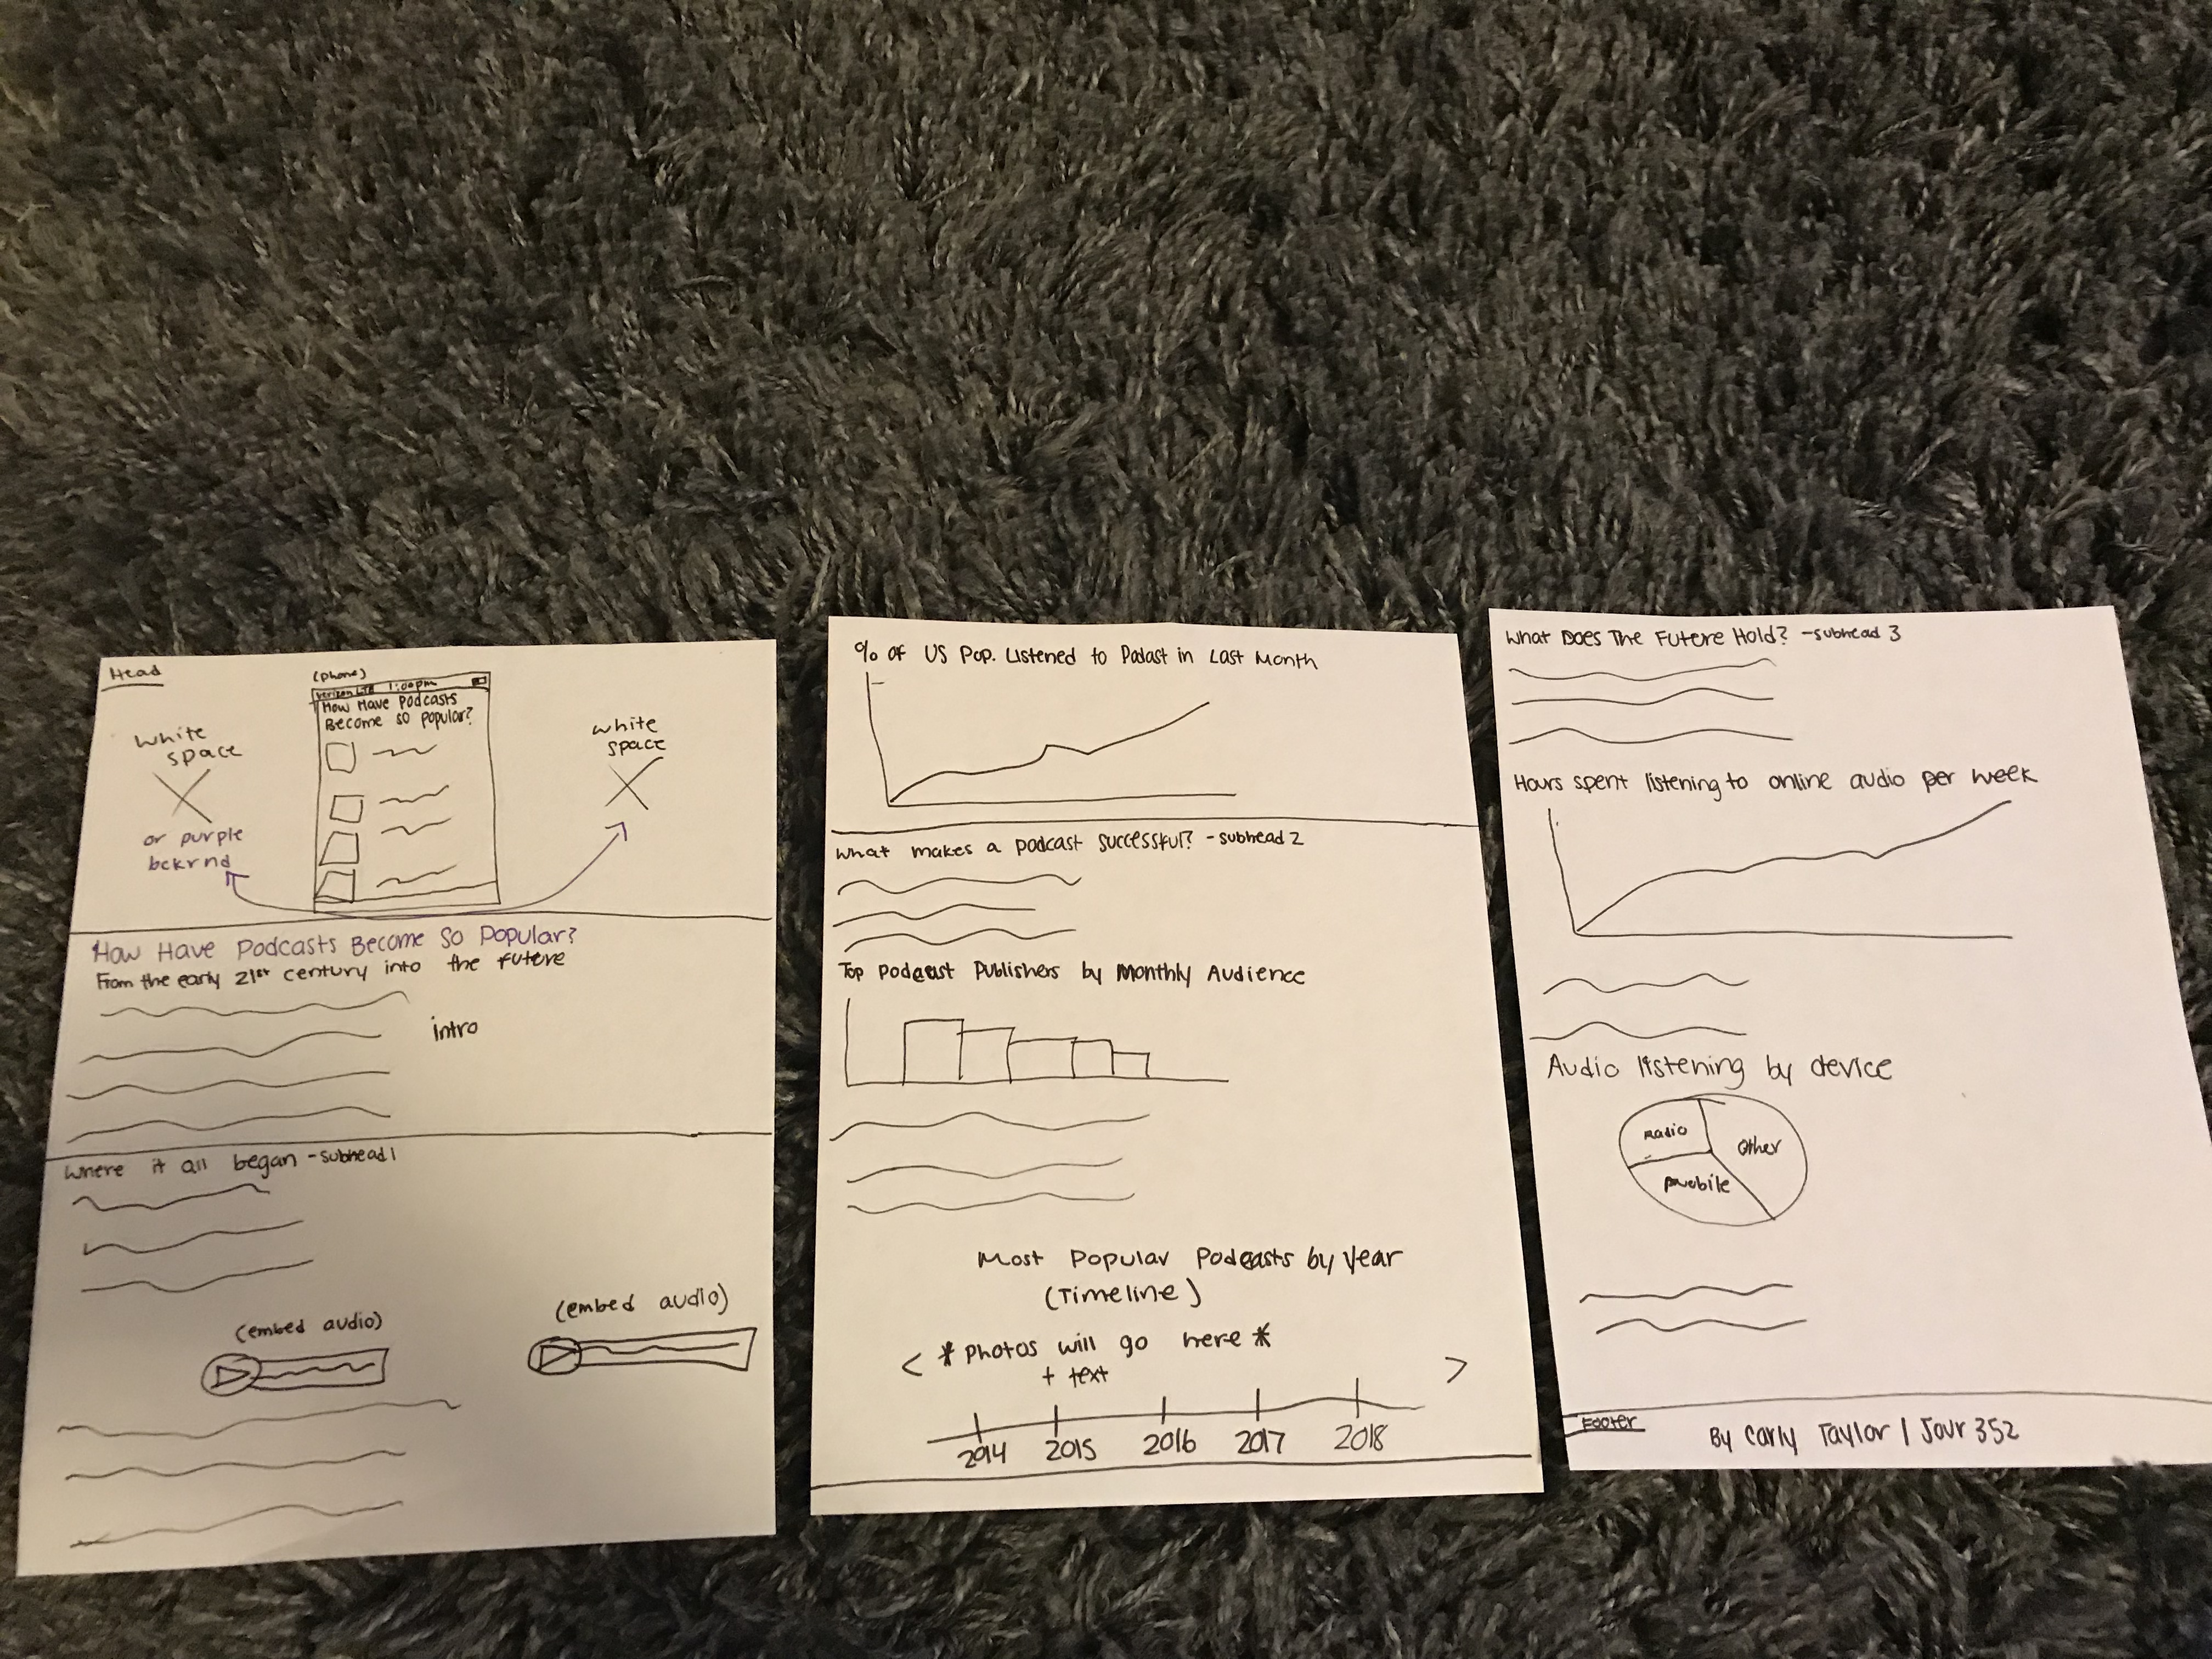 Head
(phone)
Verizon LTE 1:00pm
How Have Podcasts
Become so popular?
white
space
or purple
bckrnd
white
space
How Have Podcasts Become So Popular?
From the early 21st century into the future
intro
Where it all began - subhead 1
(embed audio)
(embed audio)
% of US Pop. Listened to Podast in Last Month
What makes a podcast successful? - subhead 2
Top podcast Publishers by Monthly Audience
Most Popular Podcasts by Year
(Timeline)
< * Photos will go here * >
+ text
2014 2015 2016 2017 2018
What Does The Future Hold? - subhead 3
Hours spent listening to online audio per week
Audio listening by device
Radio
Other
mobile
Footer
By Carly Taylor | Jour 352